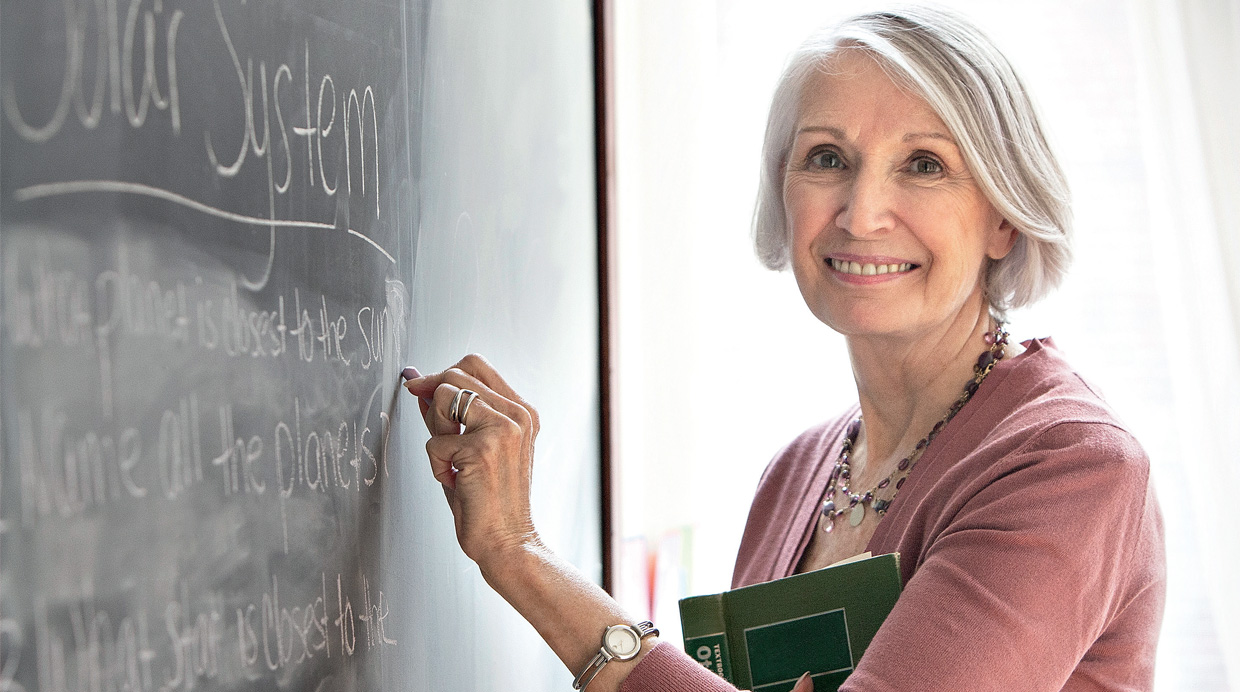 Solar System
What planet is closest to the sun?
Name all the planets?
What star is closest to the
TEXTBO